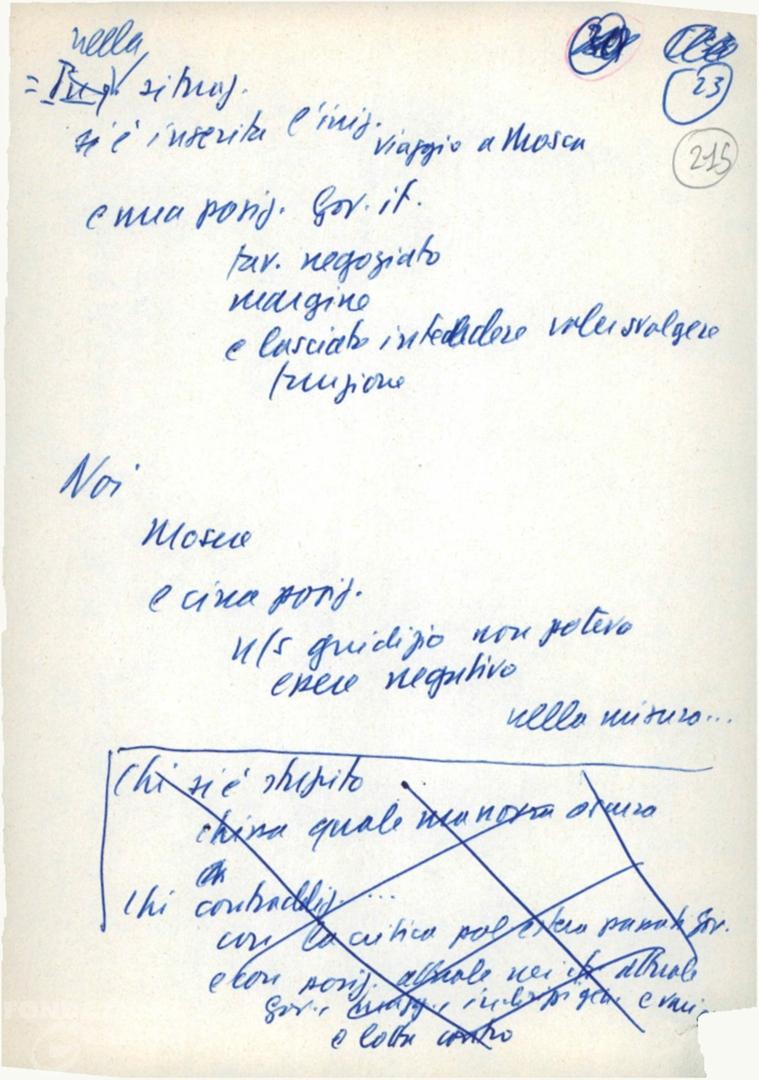 nella
23
= situaz.
215
si è inserita l'iniz. viaggio a Mosca
e una posiz. Gov. it.
fav. negoziato
margine
e lasciato intendere voler svolgere
funzione
Noi
Mosca
e circa posiz.
n/s giudizio non poteva
essere negativo
nella misura...
Chi si è stupito
chissà quale manovra oscura
Chi contraddiz. ...
con la critica pol estera passati Gov.
e con posiz. attuale
Gov.
e lotta contro